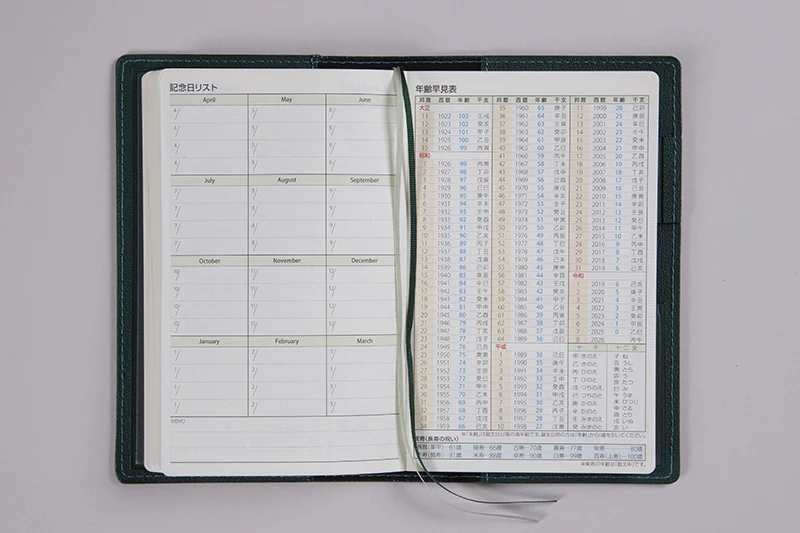 記念日リスト
April May June
4/ 5/ 6/
4/ 5/ 6/
4/ 5/ 6/
4/ 5/ 6/
July August September
7/ 8/ 9/
7/ 8/ 9/
7/ 8/ 9/
7/ 8/ 9/
October November December
10/ 11/ 12/
10/ 11/ 12/
10/ 11/ 12/
10/ 11/ 12/
January February March
1/ 2/ 3/
1/ 2/ 3/
1/ 2/ 3/
1/ 2/ 3/
MEMO
年齢早見表
邦暦 西暦 年齢 干支
大正
11 1922 103 壬戌
12 1923 102 癸亥
13 1924 101 甲子
14 1925 100 乙丑
15 1926 99 丙寅
昭和
1 1926 99 丙寅
2 1927 98 丁卯
3 1928 97 戊辰
4 1929 96 己巳
5 1930 95 庚午
6 1931 94 辛未
7 1932 93 壬申
8 1933 92 癸酉
9 1934 91 甲戌
10 1935 90 乙亥
11 1936 89 丙子
12 1937 88 丁丑
13 1938 87 戊寅
14 1939 86 己卯
15 1940 85 庚辰
16 1941 84 辛巳
17 1942 83 壬午
18 1943 82 癸未
19 1944 81 甲申
20 1945 80 乙酉
21 1946 79 丙戌
22 1947 78 丁亥
23 1948 77 戊子
24 1949 76 己丑
25 1950 75 庚寅
26 1951 74 辛卯
27 1952 73 壬辰
28 1953 72 癸巳
29 1954 71 甲午
30 1955 70 乙未
31 1956 69 丙申
32 1957 68 丁酉
33 1958 67 戊戌
34 1959 66 己亥
邦暦 西暦 年齢 干支
35 1960 65 庚子
36 1961 64 辛丑
37 1962 63 壬寅
38 1963 62 癸卯
39 1964 61 甲辰
40 1965 60 乙巳
41 1966 59 丙午
42 1967 58 丁未
43 1968 57 戊申
44 1969 56 己酉
45 1970 55 庚戌
46 1971 54 辛亥
47 1972 53 壬子
48 1973 52 癸丑
49 1974 51 甲寅
50 1975 50 乙卯
51 1976 49 丙辰
52 1977 48 丁巳
53 1978 47 戊午
54 1979 46 己未
55 1980 45 庚申
56 1981 44 辛酉
57 1982 43 壬戌
58 1983 42 癸亥
59 1984 41 甲子
60 1985 40 乙丑
61 1986 39 丙寅
62 1987 38 丁卯
63 1988 37 戊辰
64 1989 36 己巳
平成
1 1989 36 己巳
2 1990 35 庚午
3 1991 34 辛未
4 1992 33 壬申
5 1993 32 癸酉
6 1994 31 甲戌
7 1995 30 乙亥
8 1996 29 丙子
9 1997 28 丁丑
10 1998 27 戊寅
邦暦 西暦 年齢 干支
11 1999 26 己卯
12 2000 25 庚辰
13 2001 24 辛巳
14 2002 23 壬午
15 2003 22 癸未
16 2004 21 甲申
17 2005 20 乙酉
18 2006 19 丙戌
19 2007 18 丁亥
20 2008 17 戊子
21 2009 16 己丑
22 2010 15 庚寅
23 2011 14 辛卯
24 2012 13 壬辰
25 2013 12 癸巳
26 2014 11 甲午
27 2015 10 乙未
28 2016 9 丙申
29 2017 8 丁酉
30 2018 7 戊戌
31 2019 6 己亥
令和
1 2019 6 己亥
2 2020 5 庚子
3 2021 4 辛丑
4 2022 3 壬寅
5 2023 2 癸卯
6 2024 1 甲辰
7 2025 0 乙巳
8 2026 丙午
十干 十二支
甲 きのえ 子 ね
乙 きのと 丑 うし
丙 ひのえ 寅 とら
丁 ひのと 卯 う
戊 つちのえ 辰 たつ
己 つちのと 巳 み
庚 かのえ 午 うま
辛 かのと 未 ひつじ
壬 みずのえ 申 さる
癸 みずのと 酉 とり
戌 いぬ
亥 い
※「年齢」は誕生日以降の満年齢です。誕生日前の方は「年齢」から1歳を引いてください。
賀寿(長寿の祝い)
還暦(華甲)―61歳 緑寿―66歳 古稀―70歳 喜寿―77歳 傘寿―80歳
半寿(盤寿)―81歳 米寿―88歳 卒寿―90歳 白寿―99歳 百寿(上寿)―100歳
※賀寿の年齢は「数え年」です。